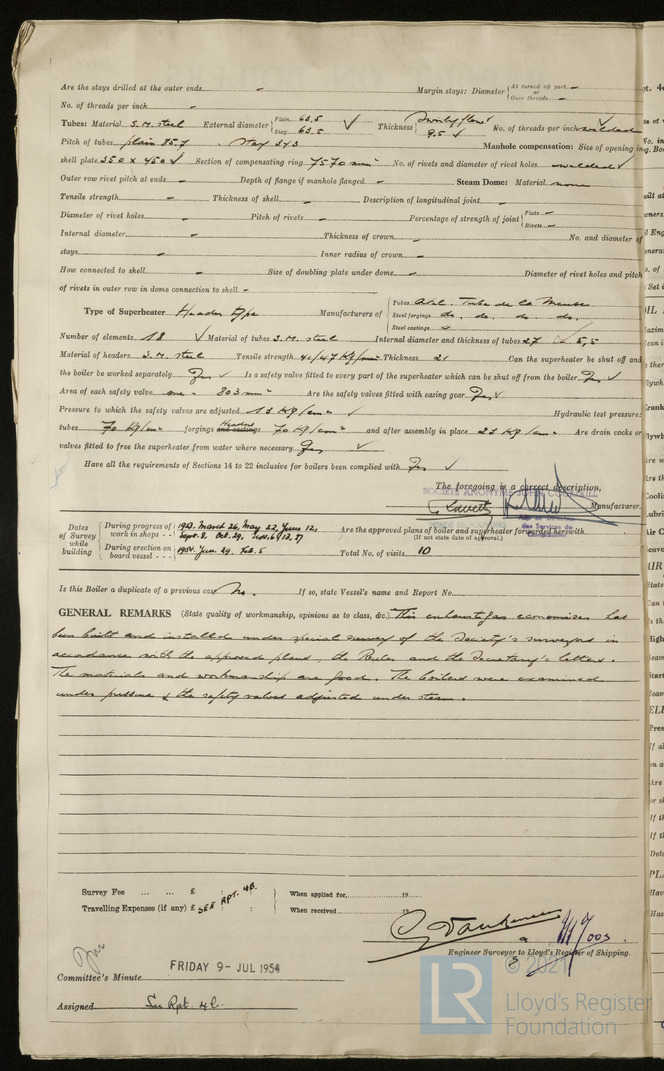 Are the stays drilled at the outer ends - Margin stays: Diameter { At turned off part - or Over threads -
No. of threads per inch -
Tubes: Material S.M. steel External diameter { Plain 63.5 Stay 63.5 ✓ Thickness { 9,5 ✓ No. of threads per inch welded
Pitch of tubes plain 85.7 . Stay 343 Manhole compensation: Size of opening in
shell plate 350 x 450 ✓ Section of compensating ring 7570 mm² No. of rivets and diameter of rivet holes welded ✓
Outer row rivet pitch at ends - Depth of flange if manhole flanged - Steam Dome: Material none
Tensile strength - Thickness of shell - Description of longitudinal joint -
Diameter of rivet holes - Pitch of rivets - Percentage of strength of joint { Plate - Rivets -
Internal diameter - Thickness of crown - No. and diameter of
stays - Inner radius of crown -
How connected to shell - Size of doubling plate under dome - Diameter of rivet holes and pitch
of rivets in outer row in dome connection to shell -
Type of Superheater Header type Manufacturers of { Tubes Atel. Tube de la Meuse
Steel forgings do. do. do. do.
Steel castings -
Number of elements 18 ✓ Material of tubes S.M. steel Internal diameter and thickness of tubes 27 5,5
Material of headers S.M. steel Tensile strength 41/47 Kg/mm² Thickness 21 Can the superheater be shut off and
the boiler be worked separately Yes ✓ Is a safety valve fitted to every part of the superheater which can be shut off from the boiler Yes ✓
Area of each safety valve one - 803 mm² Are the safety valves fitted with easing gear Yes ✓
Pressure to which the safety valves are adjusted 13 Kg/cm² ✓ Hydraulic test pressure:
tubes 70 Kg/cm² forgings and castings Headers 70 Kg/cm² and after assembly in place 23 Kg/cm² Are drain cocks or
valves fitted to free the superheater from water where necessary Yes ✓
Have all the requirements of Sections 14 to 22 inclusive for boilers been complied with Yes ✓
The foregoing is a correct description,
SOCIÉTÉ ANONYME JOHN COCKERILL
Manufacturer.
Dates of Survey while building { During progress of work in shops - - 1953. March 26, May 22, June 12, Sept. 8, Oct. 29, Nov. 6, 13, 27
Are the approved plans of boiler and superheater forwarded herewith
(If not state date of approval.)
During erection on board vessel - - - 1954. Jan. 29. Feb. 5 Total No. of visits 10
Is this Boiler a duplicate of a previous case No. If so, state Vessel's name and Report No.
GENERAL REMARKS (State quality of workmanship, opinions as to class, &c.) This exhaust gas economiser has
been built and installed under special survey of the Society's surveyors in
accordance with the approved plans, the Rules and the Secretary's letters.
The materials and workmanship are good. The boilers were examined
under pressure & the safety valves adjusted under steam.
Survey Fee ... ... £ : : When applied for, 19
Travelling Expenses (if any) £ SEE RPT. 4B. When received 19
Engineer Surveyor to Lloyd's Register of Shipping.
Committee's Minute FRIDAY 9 - JUL 1954
Assigned See Rpt. 4c.
© 2021
LR
Lloyd's Register
Foundation